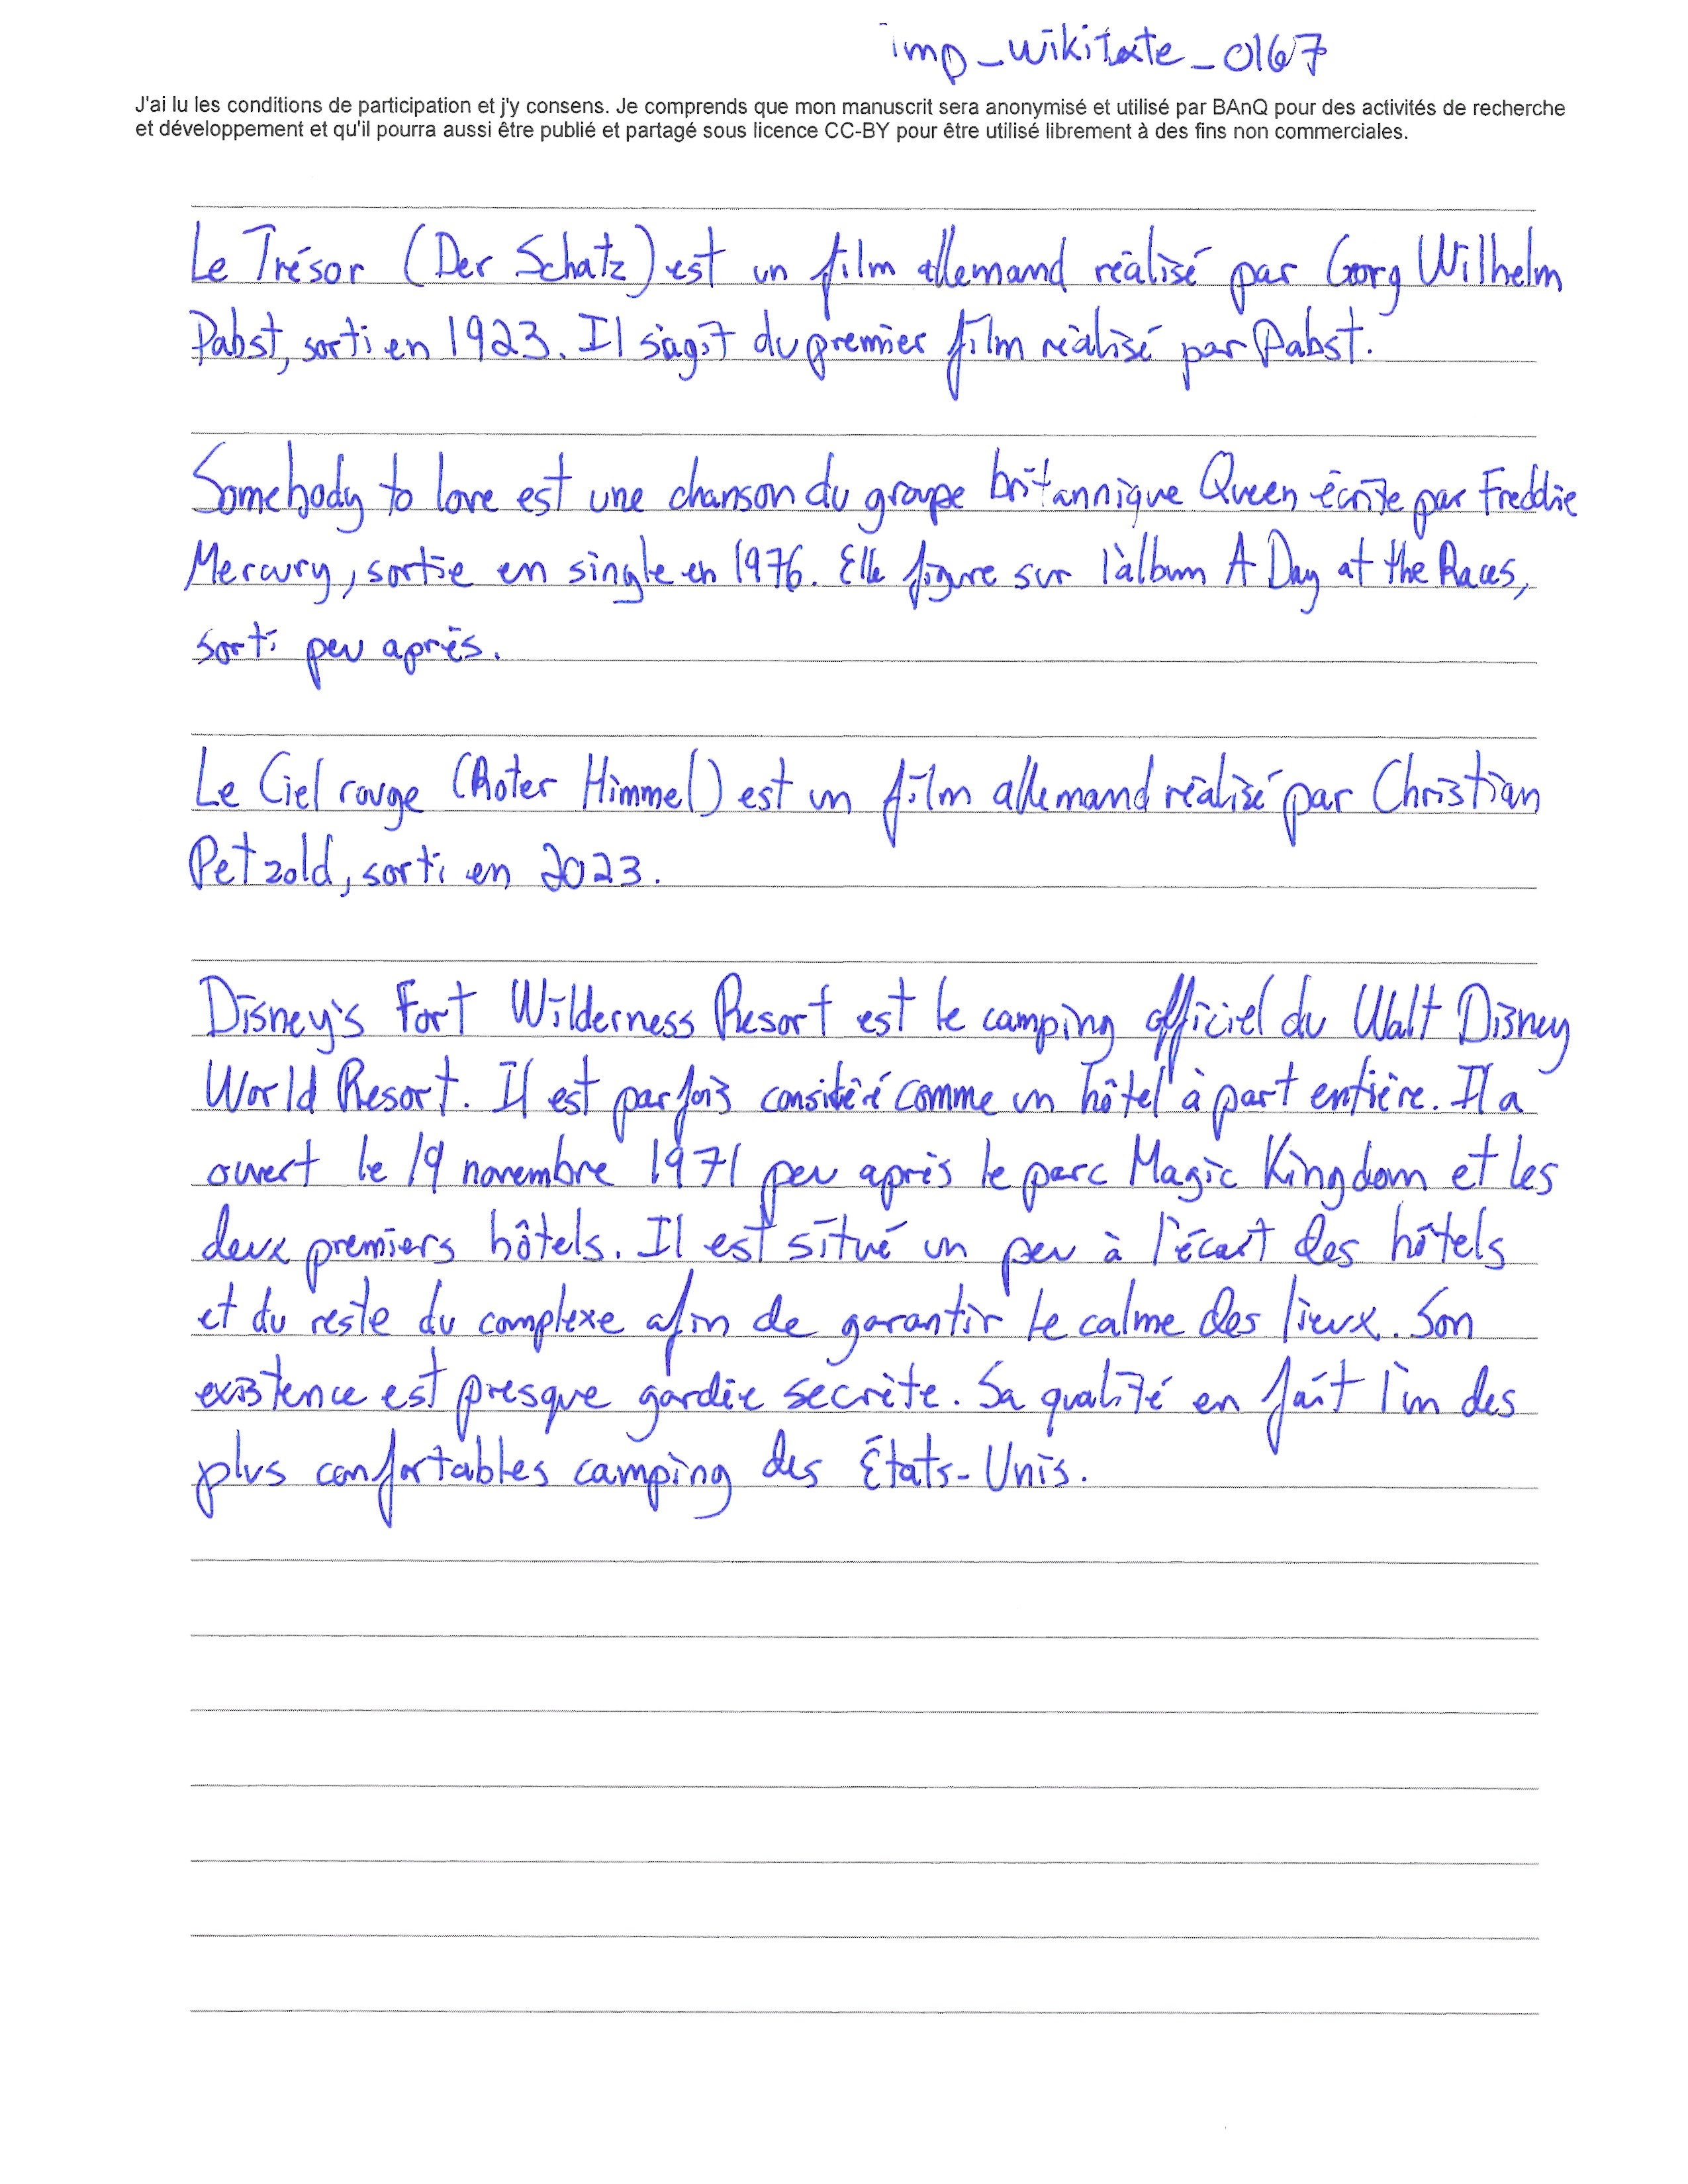 imp_wikitexte_0167
J'ai lu les conditions de participation et j'y consens. Je comprends que mon manuscrit sera anonymisé et utilisé par BAnQ pour des activités de recherche
et développement et qu'il pourra aussi être publié et partagé sous licence CC-BY pour être utilisé librement à des fins non commerciales.
Le Trésor (Der Schatz) est un film allemand réalisé par Georg Wilhelm
Pabst, sorti en 1923. Il s'agit du premier film réalisé par Pabst.
Somebody to love est une chanson du groupe britannique Queen écrite par Freddie
Mercury, sortie en single en 1976. Elle figure sur l'album A Day at the Races,
sorti peu après.
Le Ciel rouge (Roter Himmel) est un film allemand réalisé par Christian
Petzold, sorti en 2023.
Disney's Fort Wilderness Resort est le camping officiel du Walt Disney
World Resort. Il est parfois considéré comme un hôtel à part entière. Il a
ouvert le 19 novembre 1971 peu après le parc Magic Kingdom et les
deux premiers hôtels. Il est situé un peu à l'écart des hôtels
et du reste du complexe afin de garantir le calme des lieux. Son
existence est presque gardée secrète. Sa qualité en fait l'un des
plus confortables camping des États-Unis.